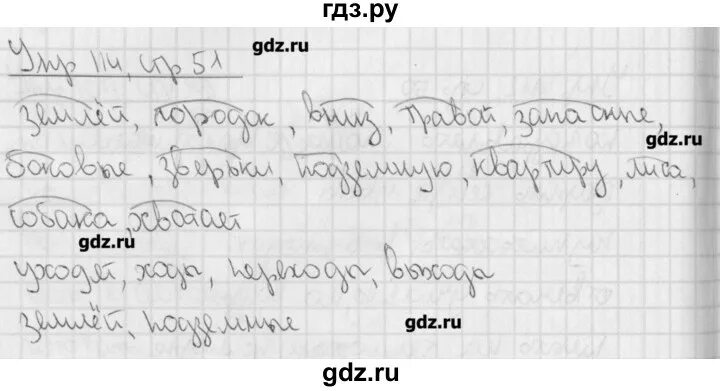 гдз.ру
gdz.ru
Упр 114, стр 51
землёй, городок, вниз, травой, запасные,
gdz.ru
боковые, зверьки, подземную, квартиру, лиса,
собака, хватает
gdz.ru
уходят, ходы, переходы, выходы
землёй, подземные
gdz.ru
gdz.ru